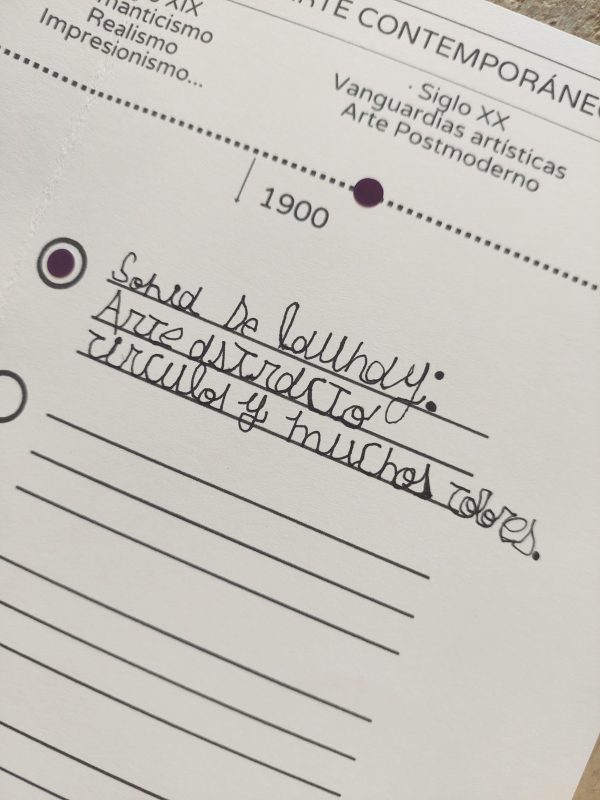 XIX
manticismo
Realismo
Impresionismo...
ARTE CONTEMPORÁNEO
· Siglo XX
Vanguardias artísticas
Arte Postmoderno
1900
Sonia De launay:
Arte astracto
circulos y muchos colores.